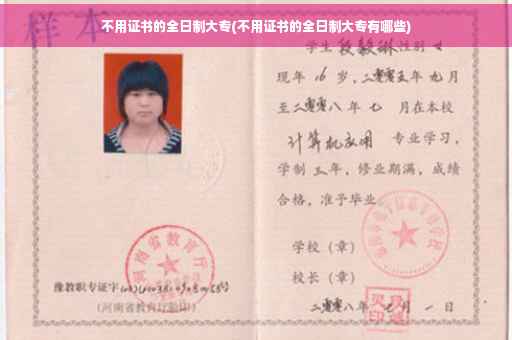 样本
不用证书的全日制大专(不用证书的全日制大专有哪些)
学生段毅琳性别女
现年16岁,二零零五年九月
至二零零八年七月在本校
计算机应用 专业学习,
学制三年,修业期满,成绩
合格,准予毕业
学校(章)
校长(章)
二零零八年七月一日
河南省教育厅
豫教职专证字
(河南省教育厅验印)